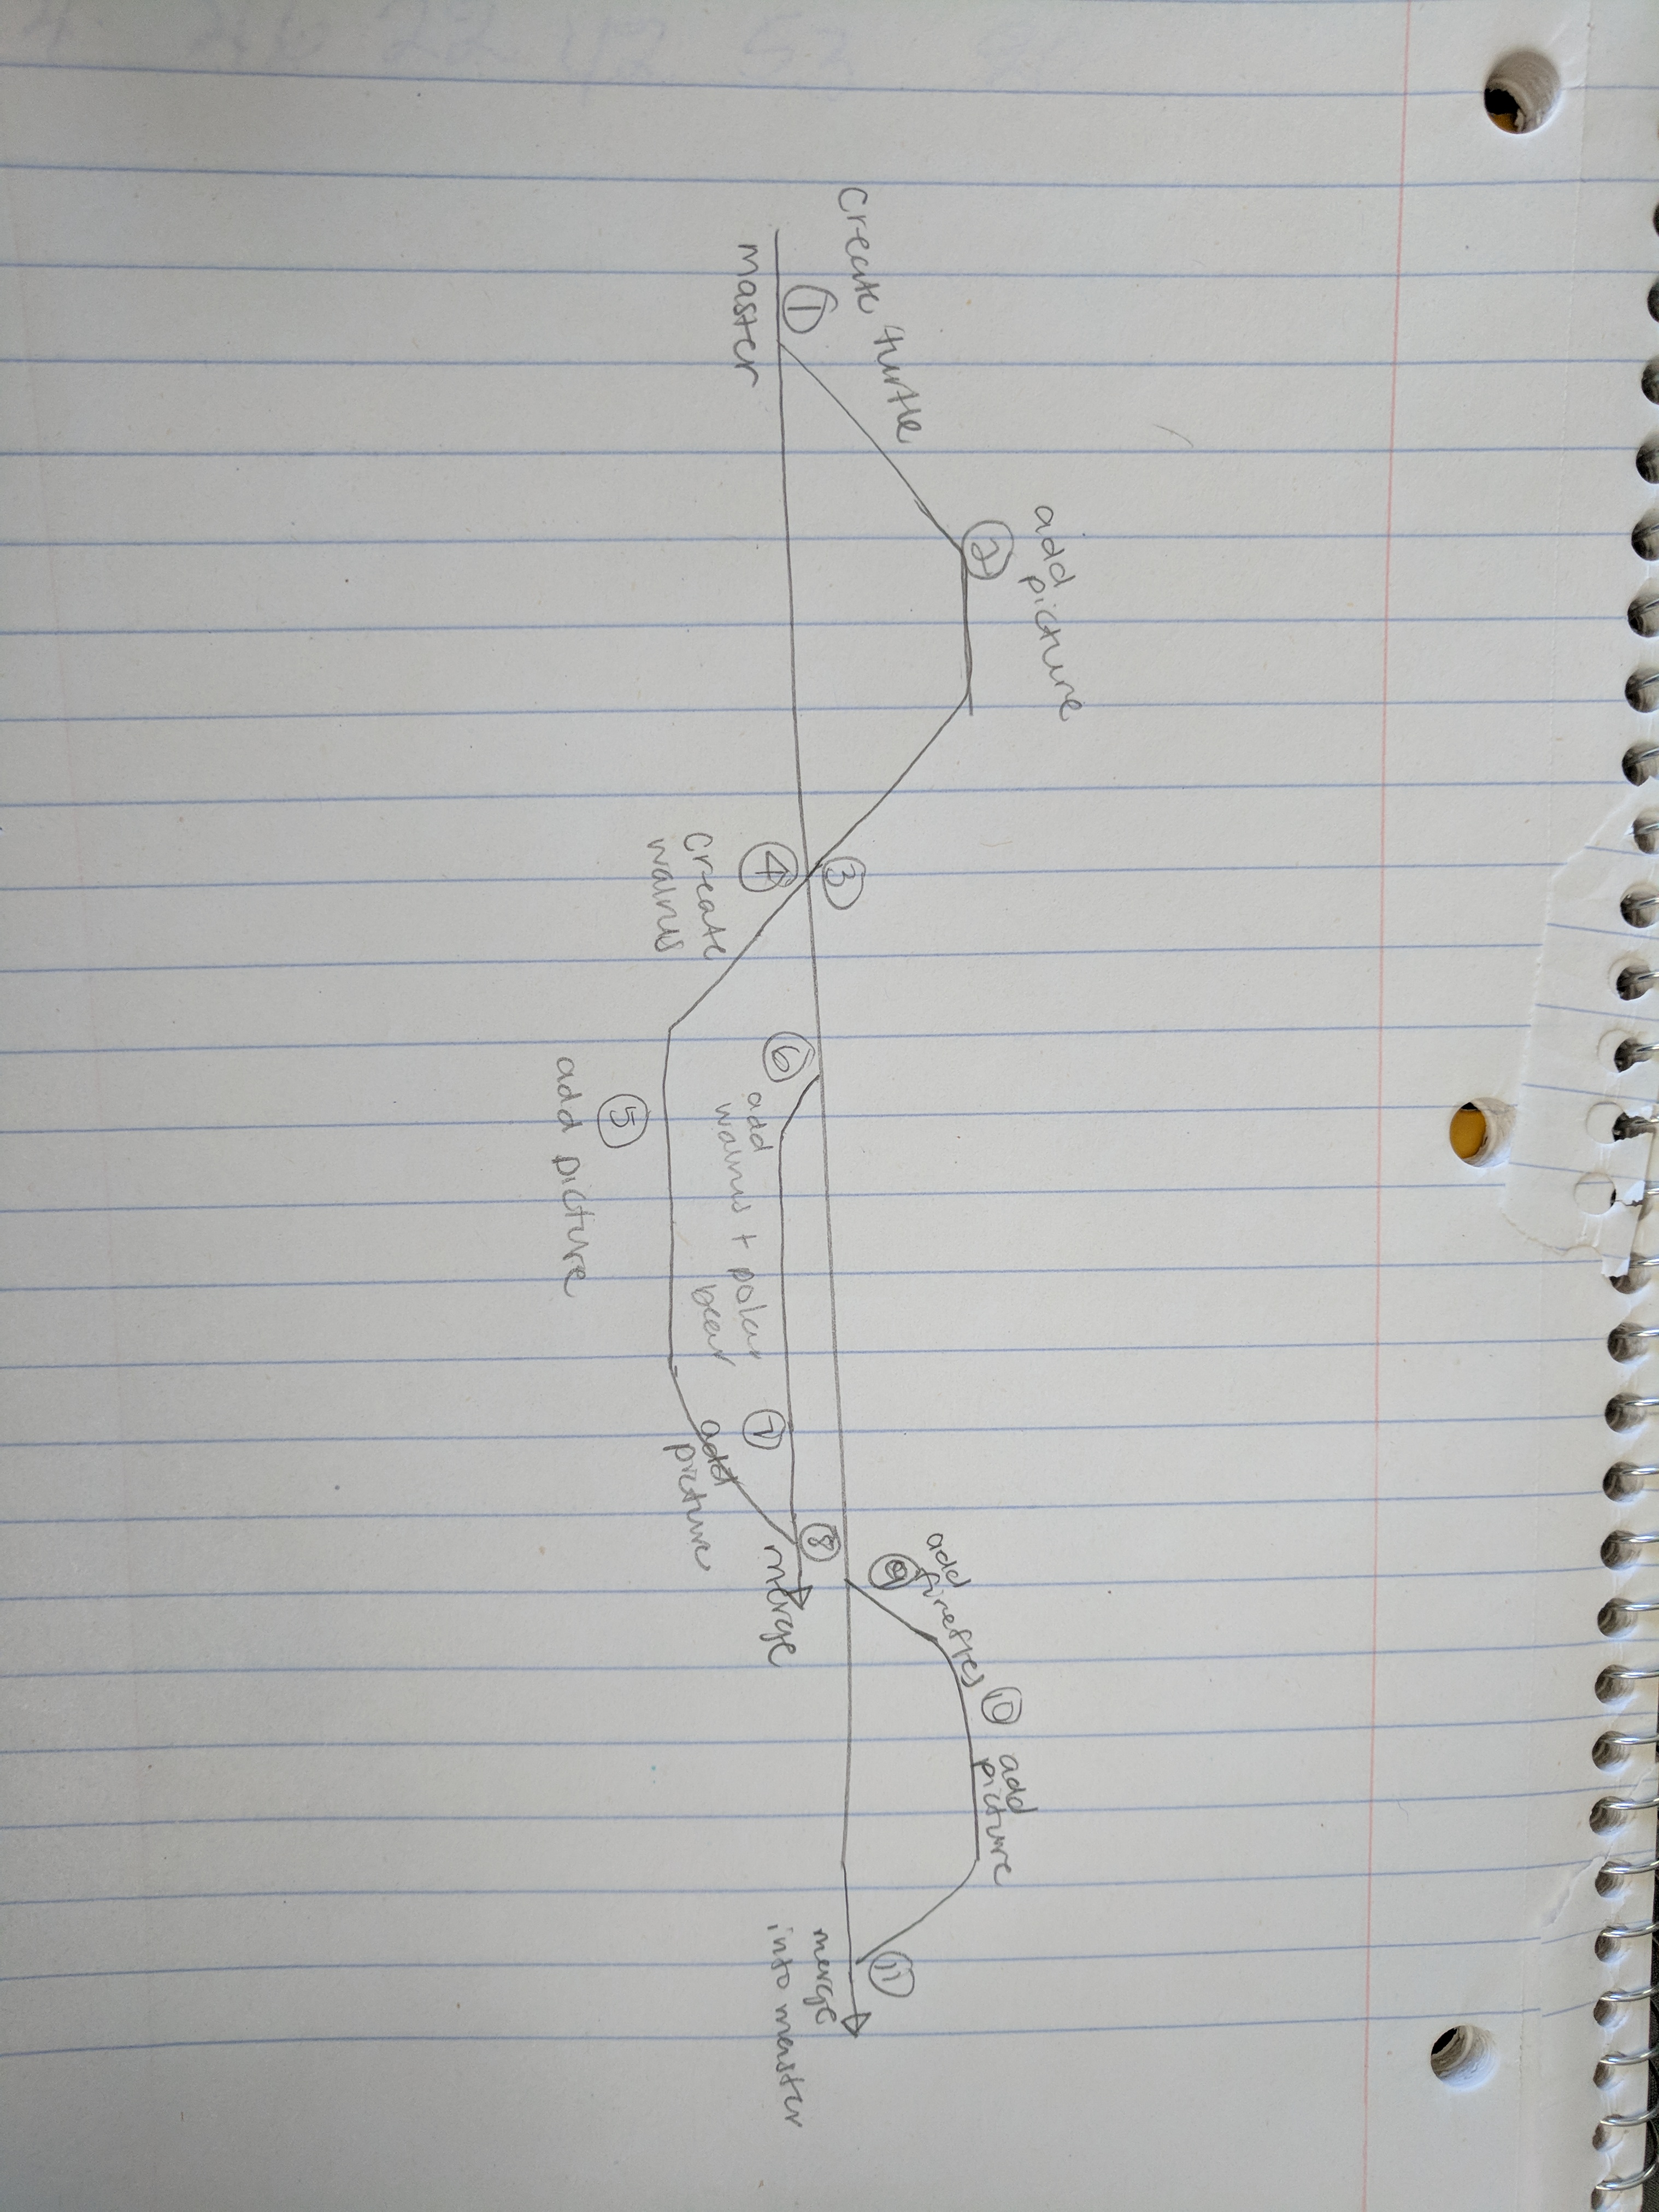 Create turtle
①
master
②
add
picture
③
④
create
walrus
⑤
add picture
⑥
add
walrus + polar
bear
⑦
add
picture
⑧
merge
⑨
add
⑩
add
picture
⑪
merge
into master